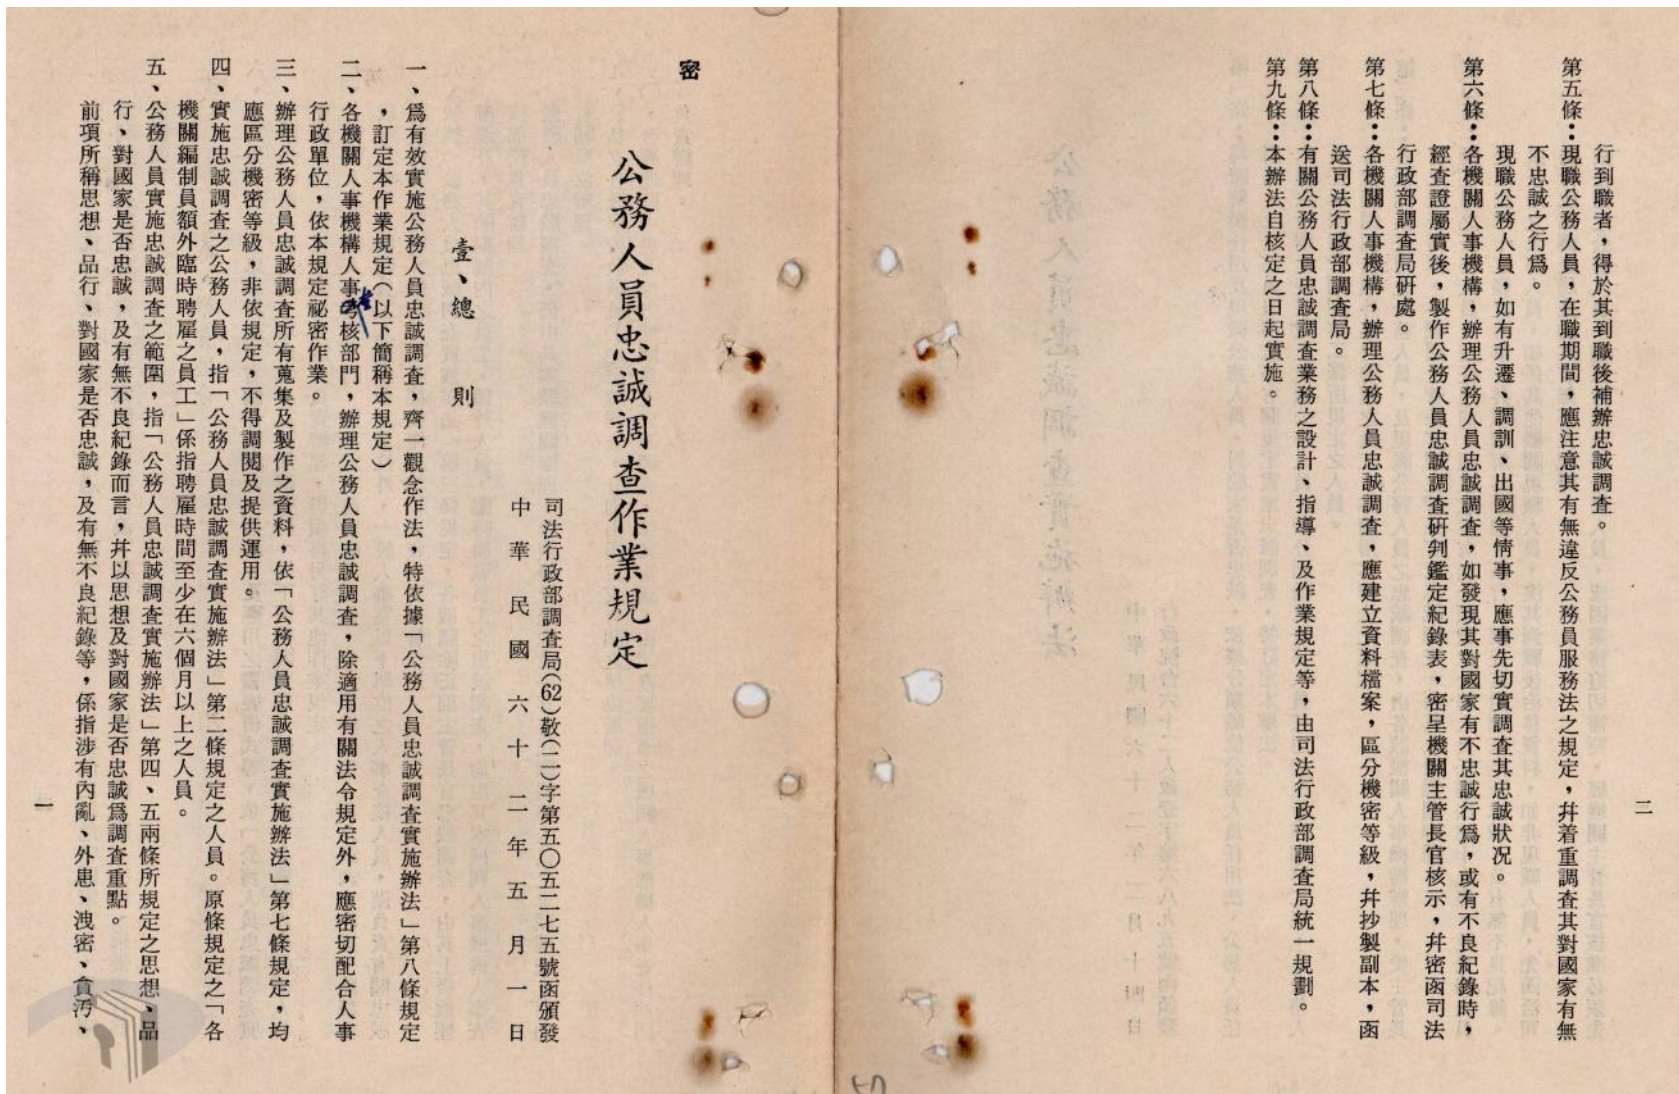 二
行到職者，得於其到職後補辦忠誠調查。
第五條：現職公務人員，在職期間，應注意其有無違反公務員服務法之規定，幷着重調查其對國家有無
不忠誠之行爲。
現職公務人員，如有升遷、調訓、出國等情事，應事先切實調查其忠誠狀況。
第六條：各機關人事機構，辦理公務人員忠誠調查，如發現其對國家有不忠誠行爲，或有不良紀錄時，
經查證屬實後，製作公務人員忠誠調查硏判鑑定紀錄表，密呈機關主管長官核示，幷密函司法
行政部調查局硏處。
第七條：各機關人事機構，辦理公務人員忠誠調查，應建立資料檔案，區分機密等級，幷抄製副本，函
送司法行政部調查局。
第八條：有關公務人員忠誠調查業務之設計、指導、及作業規定等，由司法行政部調查局統一規劃。
第九條：本辦法自核定之日起實施。
密
公務人員忠誠調查作業規定
司法行政部調查局(62)敬(二)字第五〇五二七五號函頒發
中華民國六十二年五月一日
壹、總則
一、爲有效實施公務人員忠誠調查，齊一觀念作法，特依據「公務人員忠誠調查實施辦法」第八條規定
，訂定本作業規定（以下簡稱本規定）
二、各機關人事機構人事考核部門，辦理公務人員忠誠調查，除適用有關法令規定外，應密切配合人事
行政單位，依本規定祕密作業。
三、辦理公務人員忠誠調查所有蒐集及製作之資料，依「公務人員忠誠調查實施辦法」第七條規定，均
應區分機密等級，非依規定，不得調閱及提供運用。
四、實施忠誠調查之公務人員，指「公務人員忠誠調查實施辦法」第二條規定之人員。原條規定之「各
機關編制員額外臨時聘雇之員工」係指聘雇時間至少在六個月以上之人員。
五、公務人員實施忠誠調查之範圍，指「公務人員忠誠調查實施辦法」第四、五兩條所規定之思想、品
行、對國家是否忠誠，及有無不良紀錄而言，幷以思想及對國家是否忠誠爲調查重點。
前項所稱思想、品行、對國家是否忠誠，及有無不良紀錄等，係指涉有內亂、外患、洩密、貪汚、
一